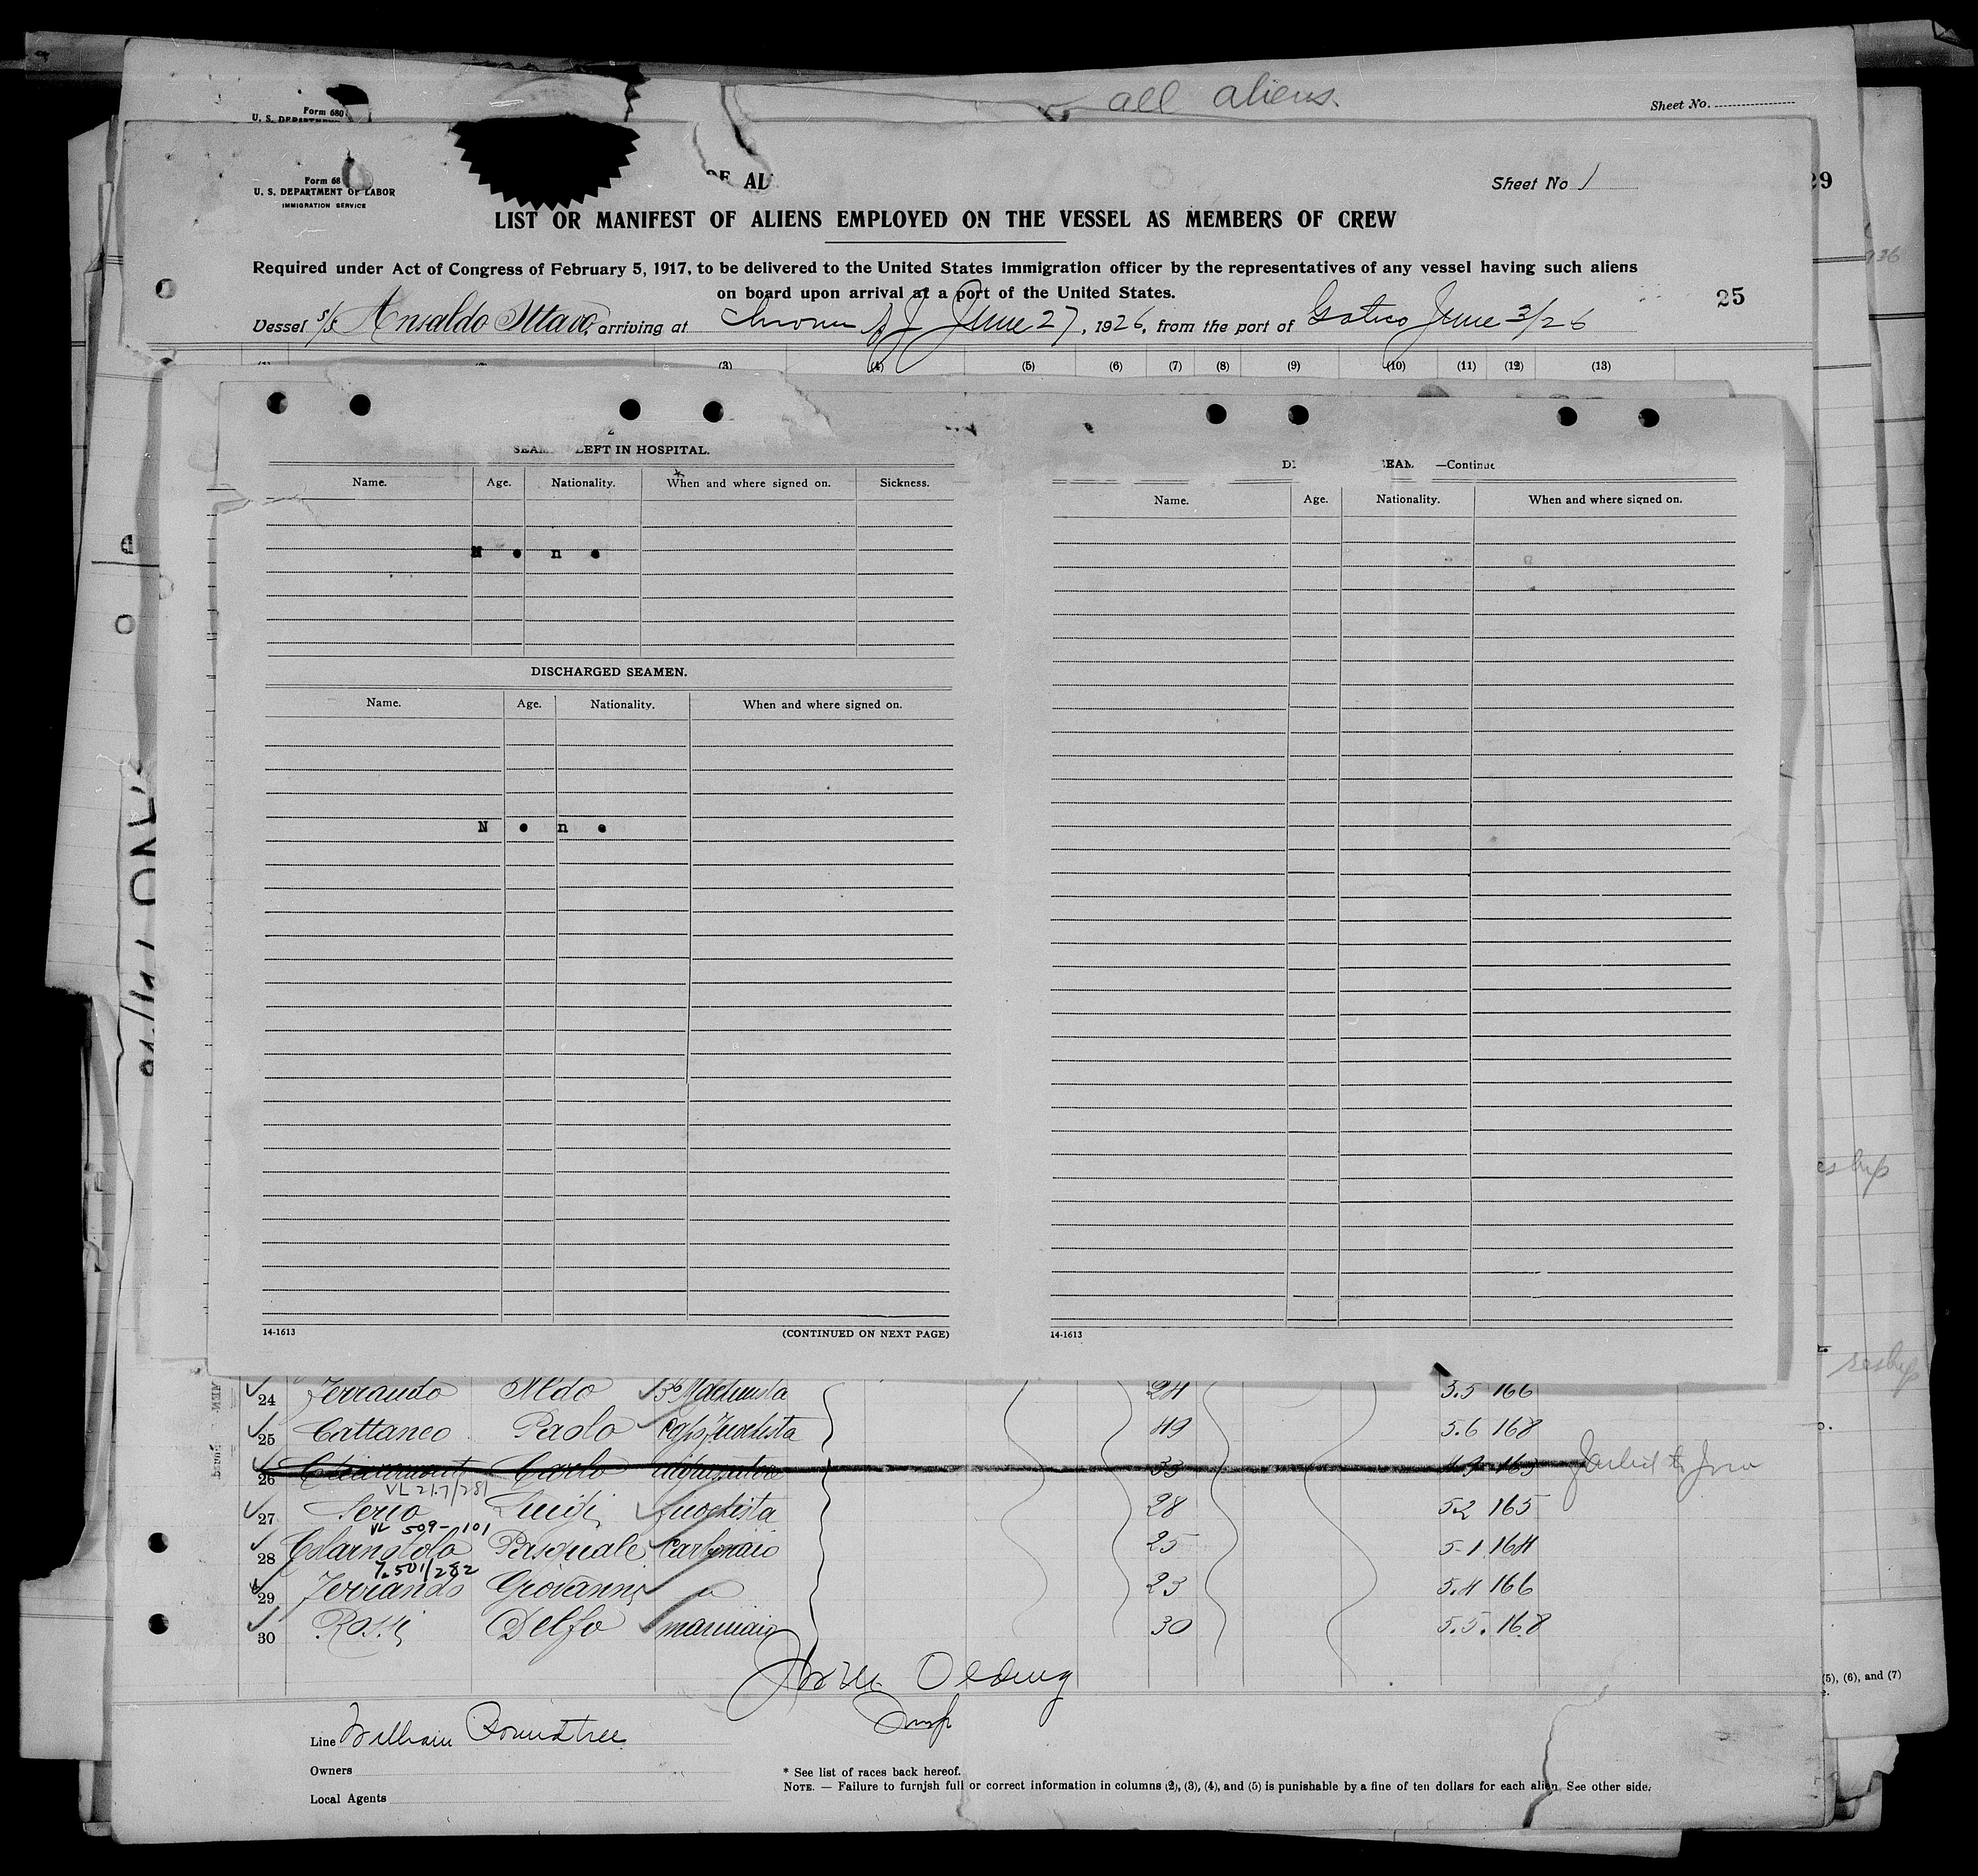 all aliens.
Form 680
U. S. DEPARTMENT
Sheet No.
Form 68
U. S. DEPARTMENT OF LABOR
IMMIGRATION SERVICE
OF AL
Sheet No 1
29
LIST OR MANIFEST OF ALIENS EMPLOYED ON THE VESSEL AS MEMBERS OF CREW
Required under Act of Congress of February 5, 1917, to be delivered to the United States immigration officer by the representatives of any vessel having such aliens
on board upon arrival at a port of the United States.
25
Vessel s/s Ansaldo Ottavo, arriving at June 27, 1926, from the port of Gatico June 3/26
(3) (4) (5) (6) (7) (8) (9) (10) (11) (12) (13)
2
SEAM LEFT IN HOSPITAL.
Name. Age. Nationality. When and where signed on. Sickness.
None
DISCHARGED SEAMEN.
Name. Age. Nationality. When and where signed on.
None
14-1613 (CONTINUED ON NEXT PAGE)
DI EAM —Continue
Name. Age. Nationality. When and where signed on.
14-1613
24 Ferrando Aldo 3º Machinista 24 5.5 166
25 Cattaneo Paolo Capo Fuochista 49 5.6 168
26 Carlo 33 4.9 165
VL 217/281
27 Serio Luigi fuochista 28 52 165
VL 509-101
28 Pasquale Carbonaio 25 5-1 164
7.501/282
29 Ferrando Giovanni " 23 5.4 166
30 Rossi Delfo marinaio 30 5.5. 168
Insp
Line William Roundtree
Owners
Local Agents
* See list of races back hereof.
NOTE. — Failure to furnish full or correct information in columns (2), (3), (4), and (5) is punishable by a fine of ten dollars for each alien. See other side.
(5), (6), and (7)